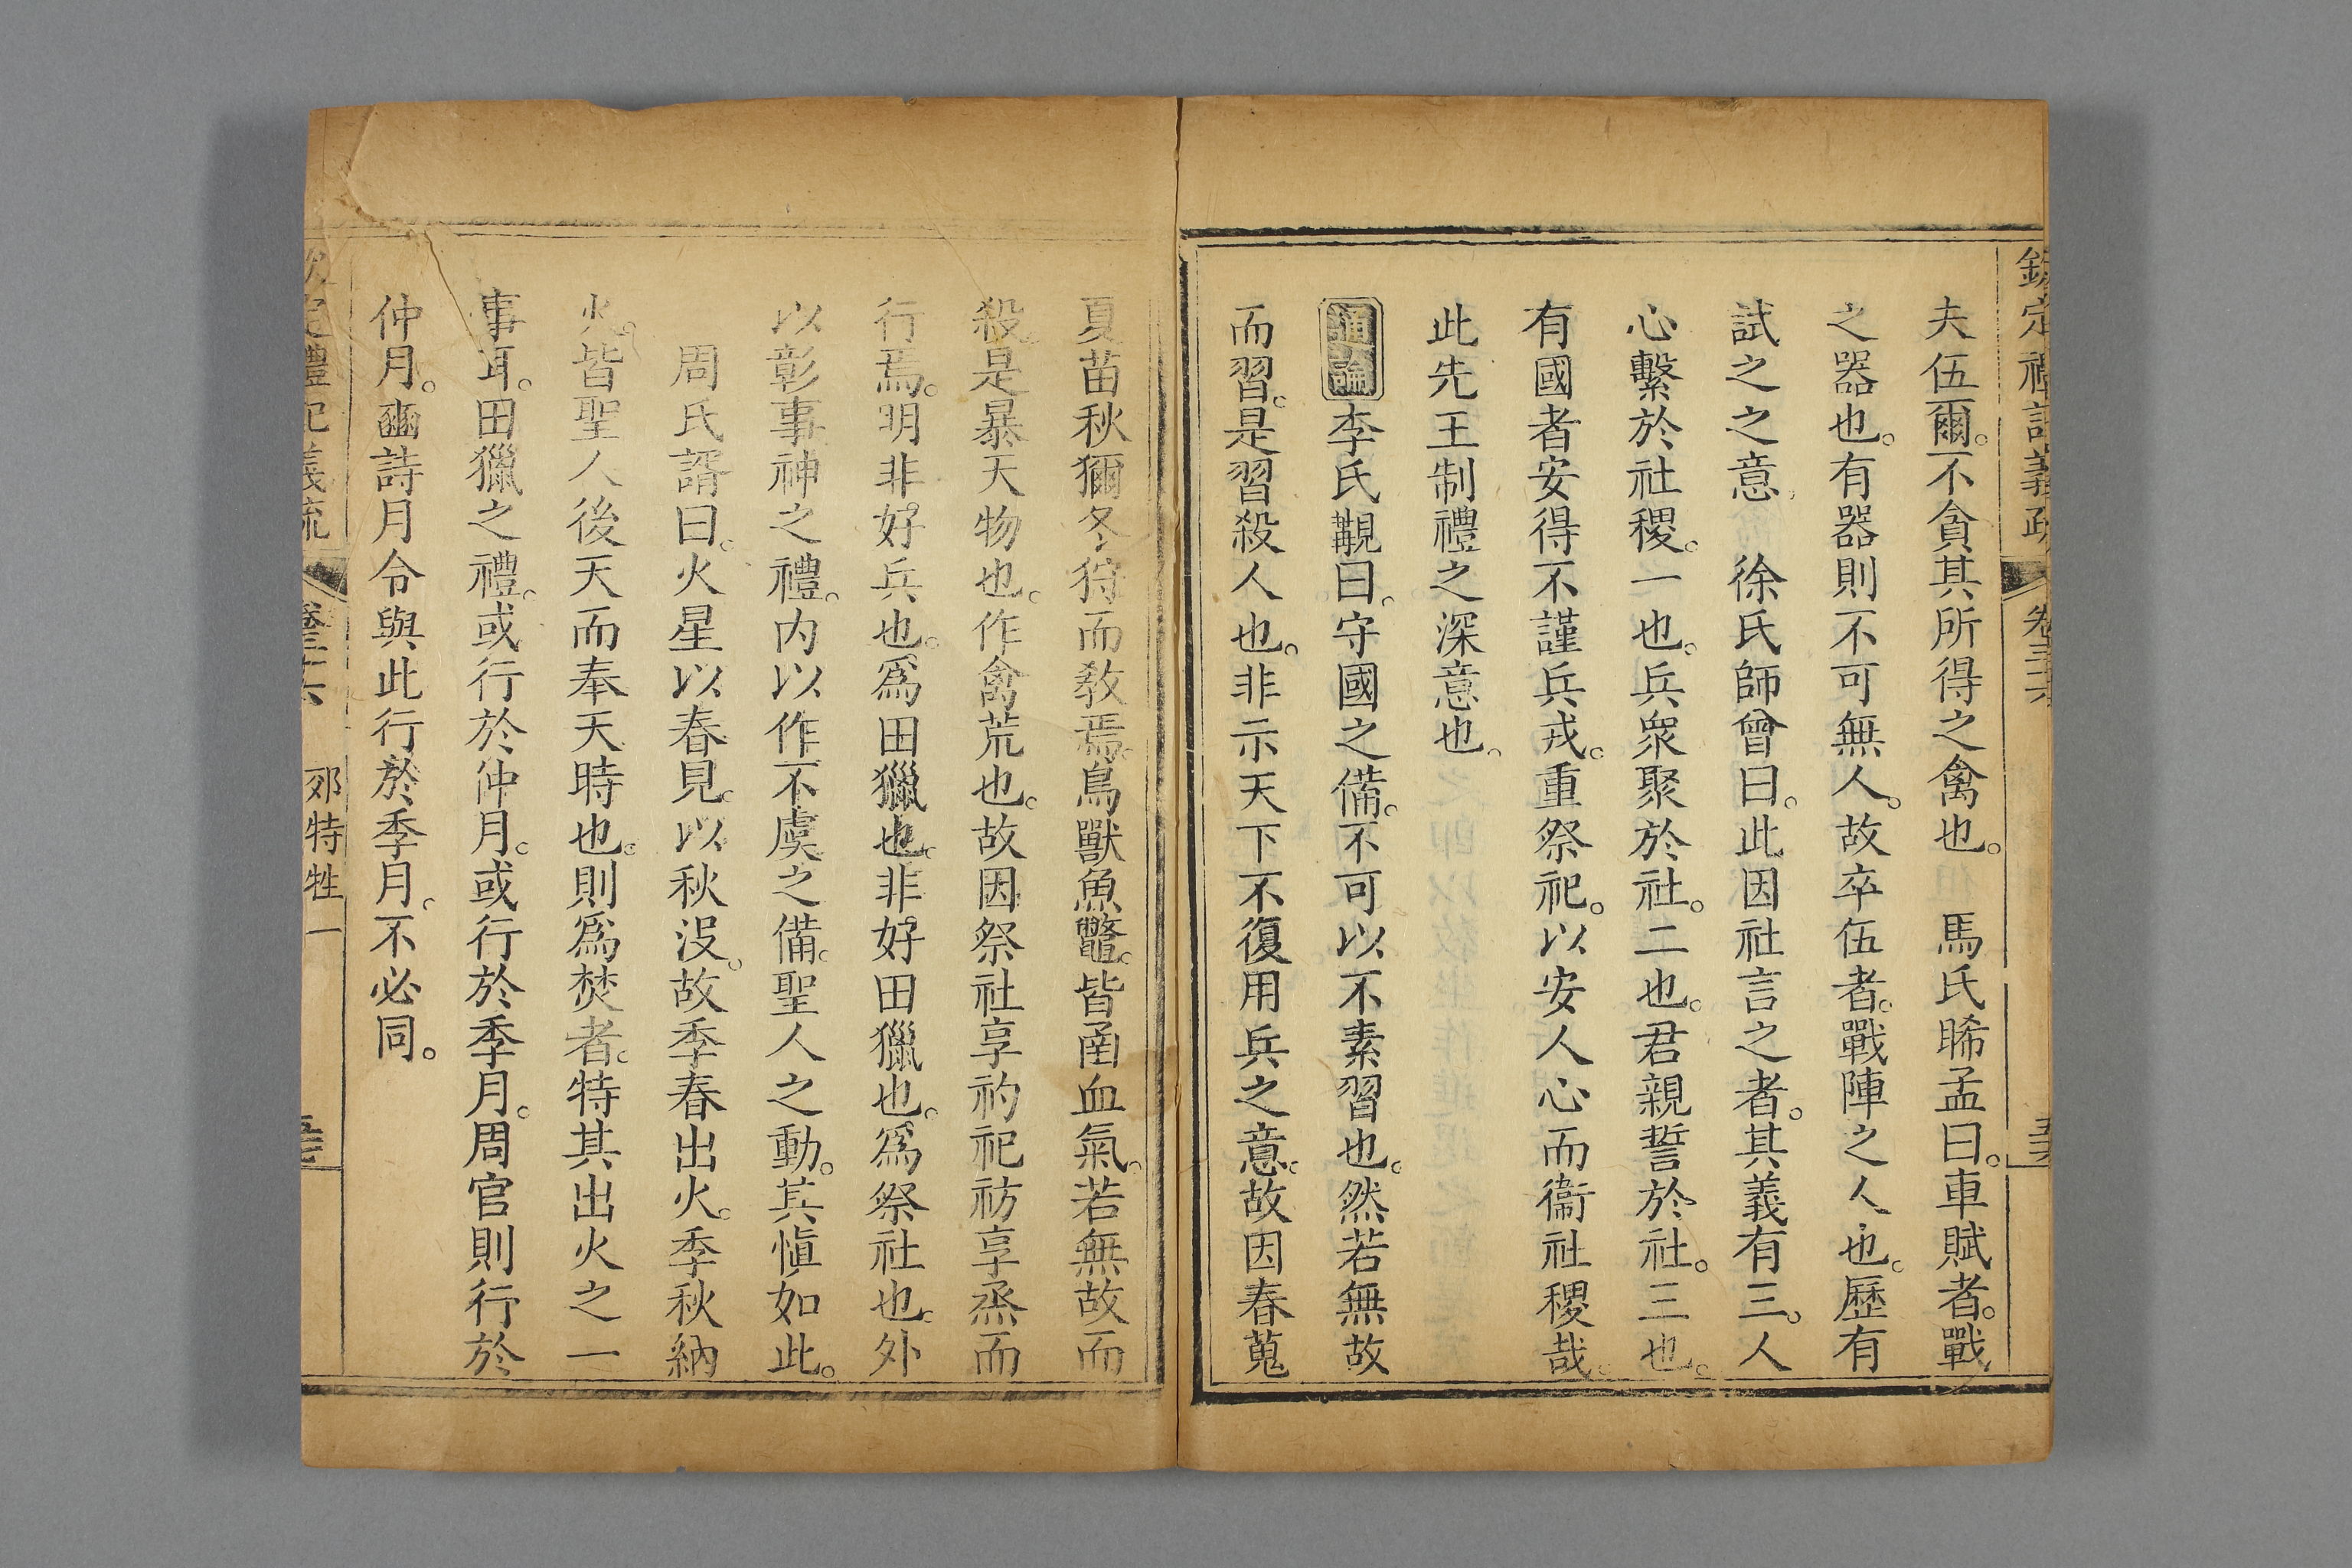 欽定禮記義疏 卷三十六
夫伍爾。不貪其所得之禽也。 馬氏晞孟曰。車賦者。戰
之器也。有器則不可無人。故卒伍者。戰陣之人也。歷有
試之之意。 徐氏師曾曰。此因社言之者。其義有三。人
心繫於社稷。一也。兵眾聚於社。二也。君親誓於社。三也。
有國者安得不謹兵戎。重祭祀。以安人心而衞社稷哉。
此先王制禮之深意也。
通論李氏覯曰。守國之備。不可以不素習也。然若無故
而習。是習殺人也。非示天下不復用兵之意。故因春蒐
夏苗秋獮冬狩而教焉。鳥獸魚鼈。皆函血氣。若無故而
殺。是暴天物也。作禽荒也。故因祭社享礿祀祊享烝而
行焉。明非好兵也。爲田獵也。非好田獵也。爲祭社也。外
以彰事神之禮。内以作不虞之備。聖人之動。其愼如此。
周氏諝曰。火星以春見。以秋沒。故季春出火。季秋納
火。皆聖人後天而奉天時也。則爲焚者。特其出火之一
事耳。田獵之禮。或行於仲月。或行於季月。周官則行於
仲月。豳詩月令與此行於季月。不必同。
欽定禮記義疏 卷三十六 郊特牲一